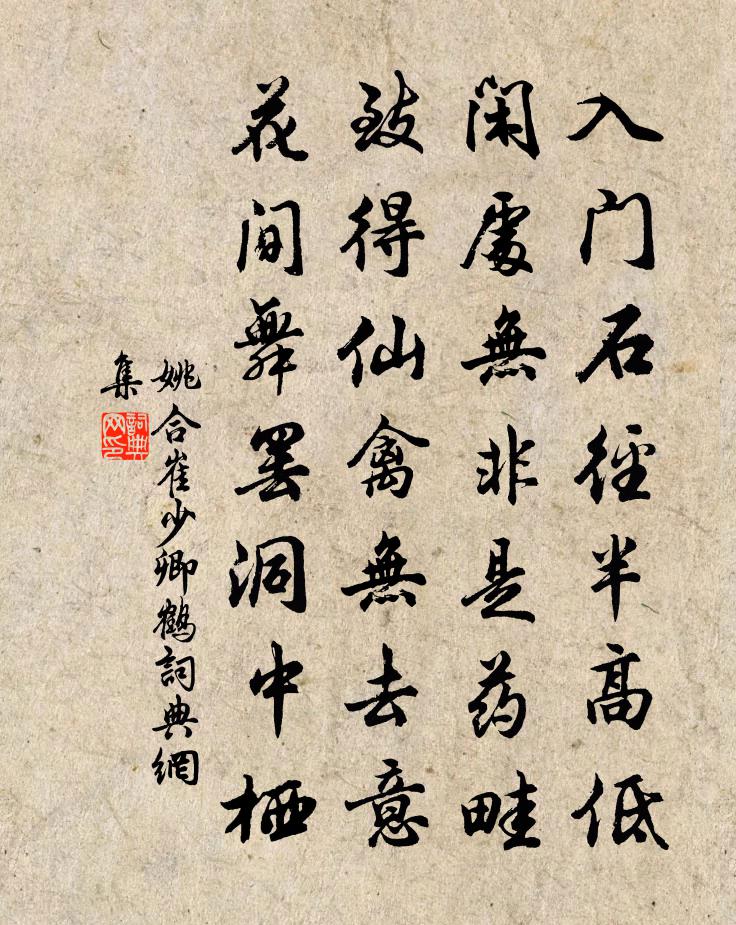 入门石径半高低
闲處無非是药畦
致得仙禽無去意
花间舞罢洞中栖
姚合崔少卿鹤詞典網
集
詞典网印